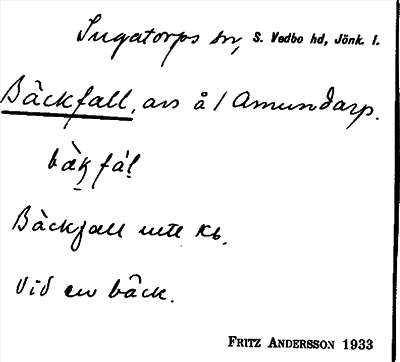 Ingatorps sn, S. Vedbo hd, Jönk. l.
Bäckfall, avs å / Amundarp.
bàk fál
Bäckfall utte Kb.
Vid en bäck.
FRITZ ANDERSSON 1933